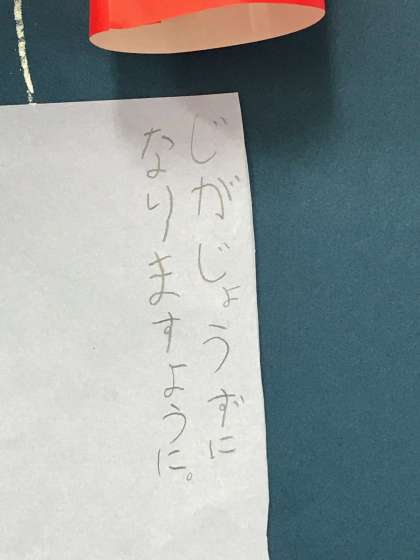 じがじょうずに
なりますように。